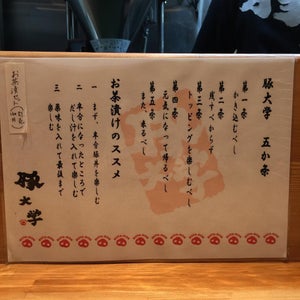 豚大学　五か条
第一条
かき込むべし
第二条
残すべからず
第三条
トッピングを楽しむべし
第四条
元気になって帰るべし
第五条
また、来るべし
お茶漬けのススメ
一　まず、半分豚丼を楽しむ
二　半分になったところで
だし汁を入れて楽しむ
三　薬味を入れて最後まで
楽しむ
豚大学
お茶漬セット